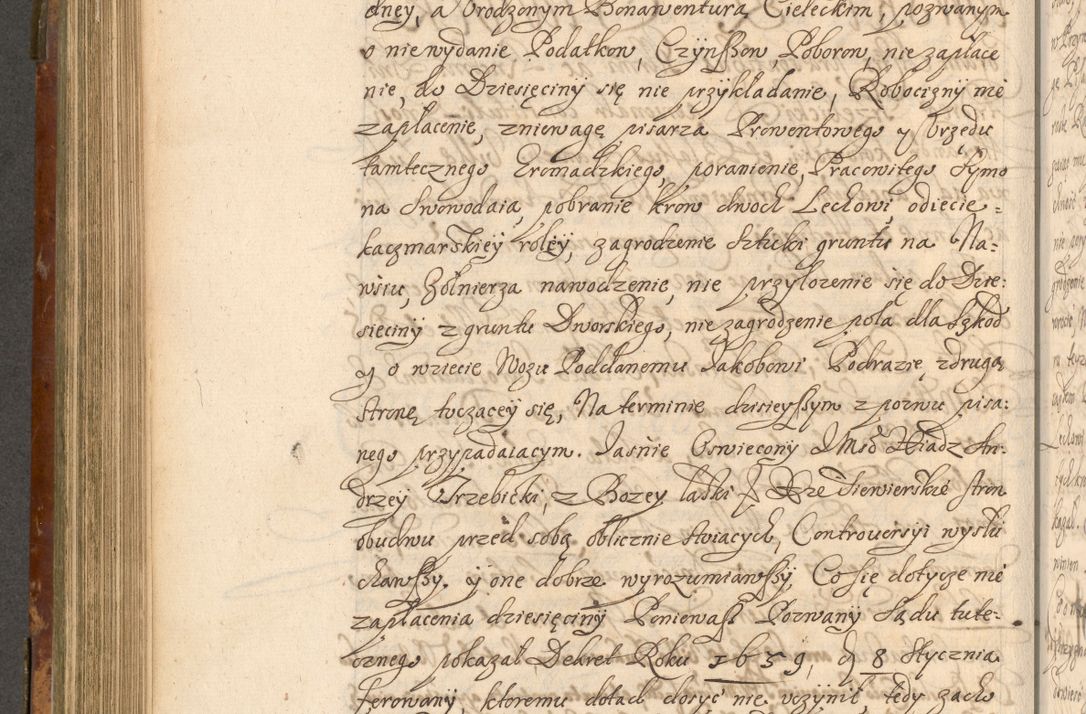 dney, a Vrodzonym Bonawentura Cieleckim, pozwanym
o nie wydanie Podatkow, Czynszow, Poborow, nie zapłace
nie, do Dziesięciny się nie przykładanie, Robocizny nie
zapłacenie, zniewagę pisarza Prowentowego y Vrzędu
tamtecznego Gromadzkiego, poranienie, Pracowitego Symo
na Swowodaia, pobranie krow dwoch Lechowi, odięcie=
kaczmarskiey roley, zagrodzenie sztuki gruntu na Na=
wsiu, Żołnierza nawodzenie, nie przyłozenie się do Dzie:
sięciny z gruntu Dworskiego, nie zagrodzenie pola dla szkod
y o wzięcie Wozu Poddanemu Jakobowi Podrazie, z drugą
stronę tyczącey się, Na terminie dzisieyszym z pozwu pisa:
nego przypadaiacym. Jaśnie Oswiecony Xiadz An:
drzey Trzebicki, z Bozey łaski Siewierskie stron
obudwu przed sobą oblicznie stoiących, Controuersyi wysłu
chawszy. y one dobrze wyrozumiawszy, Co się dotycze nie
zapłacenia dziesięciny Poniewasz Pozwany sądu tute=
cznego pokazał Dekret Roku 1659, d 8 Stycznia
ferowany ktoremu dotąd dosyć nie vczynił, tedy zacho